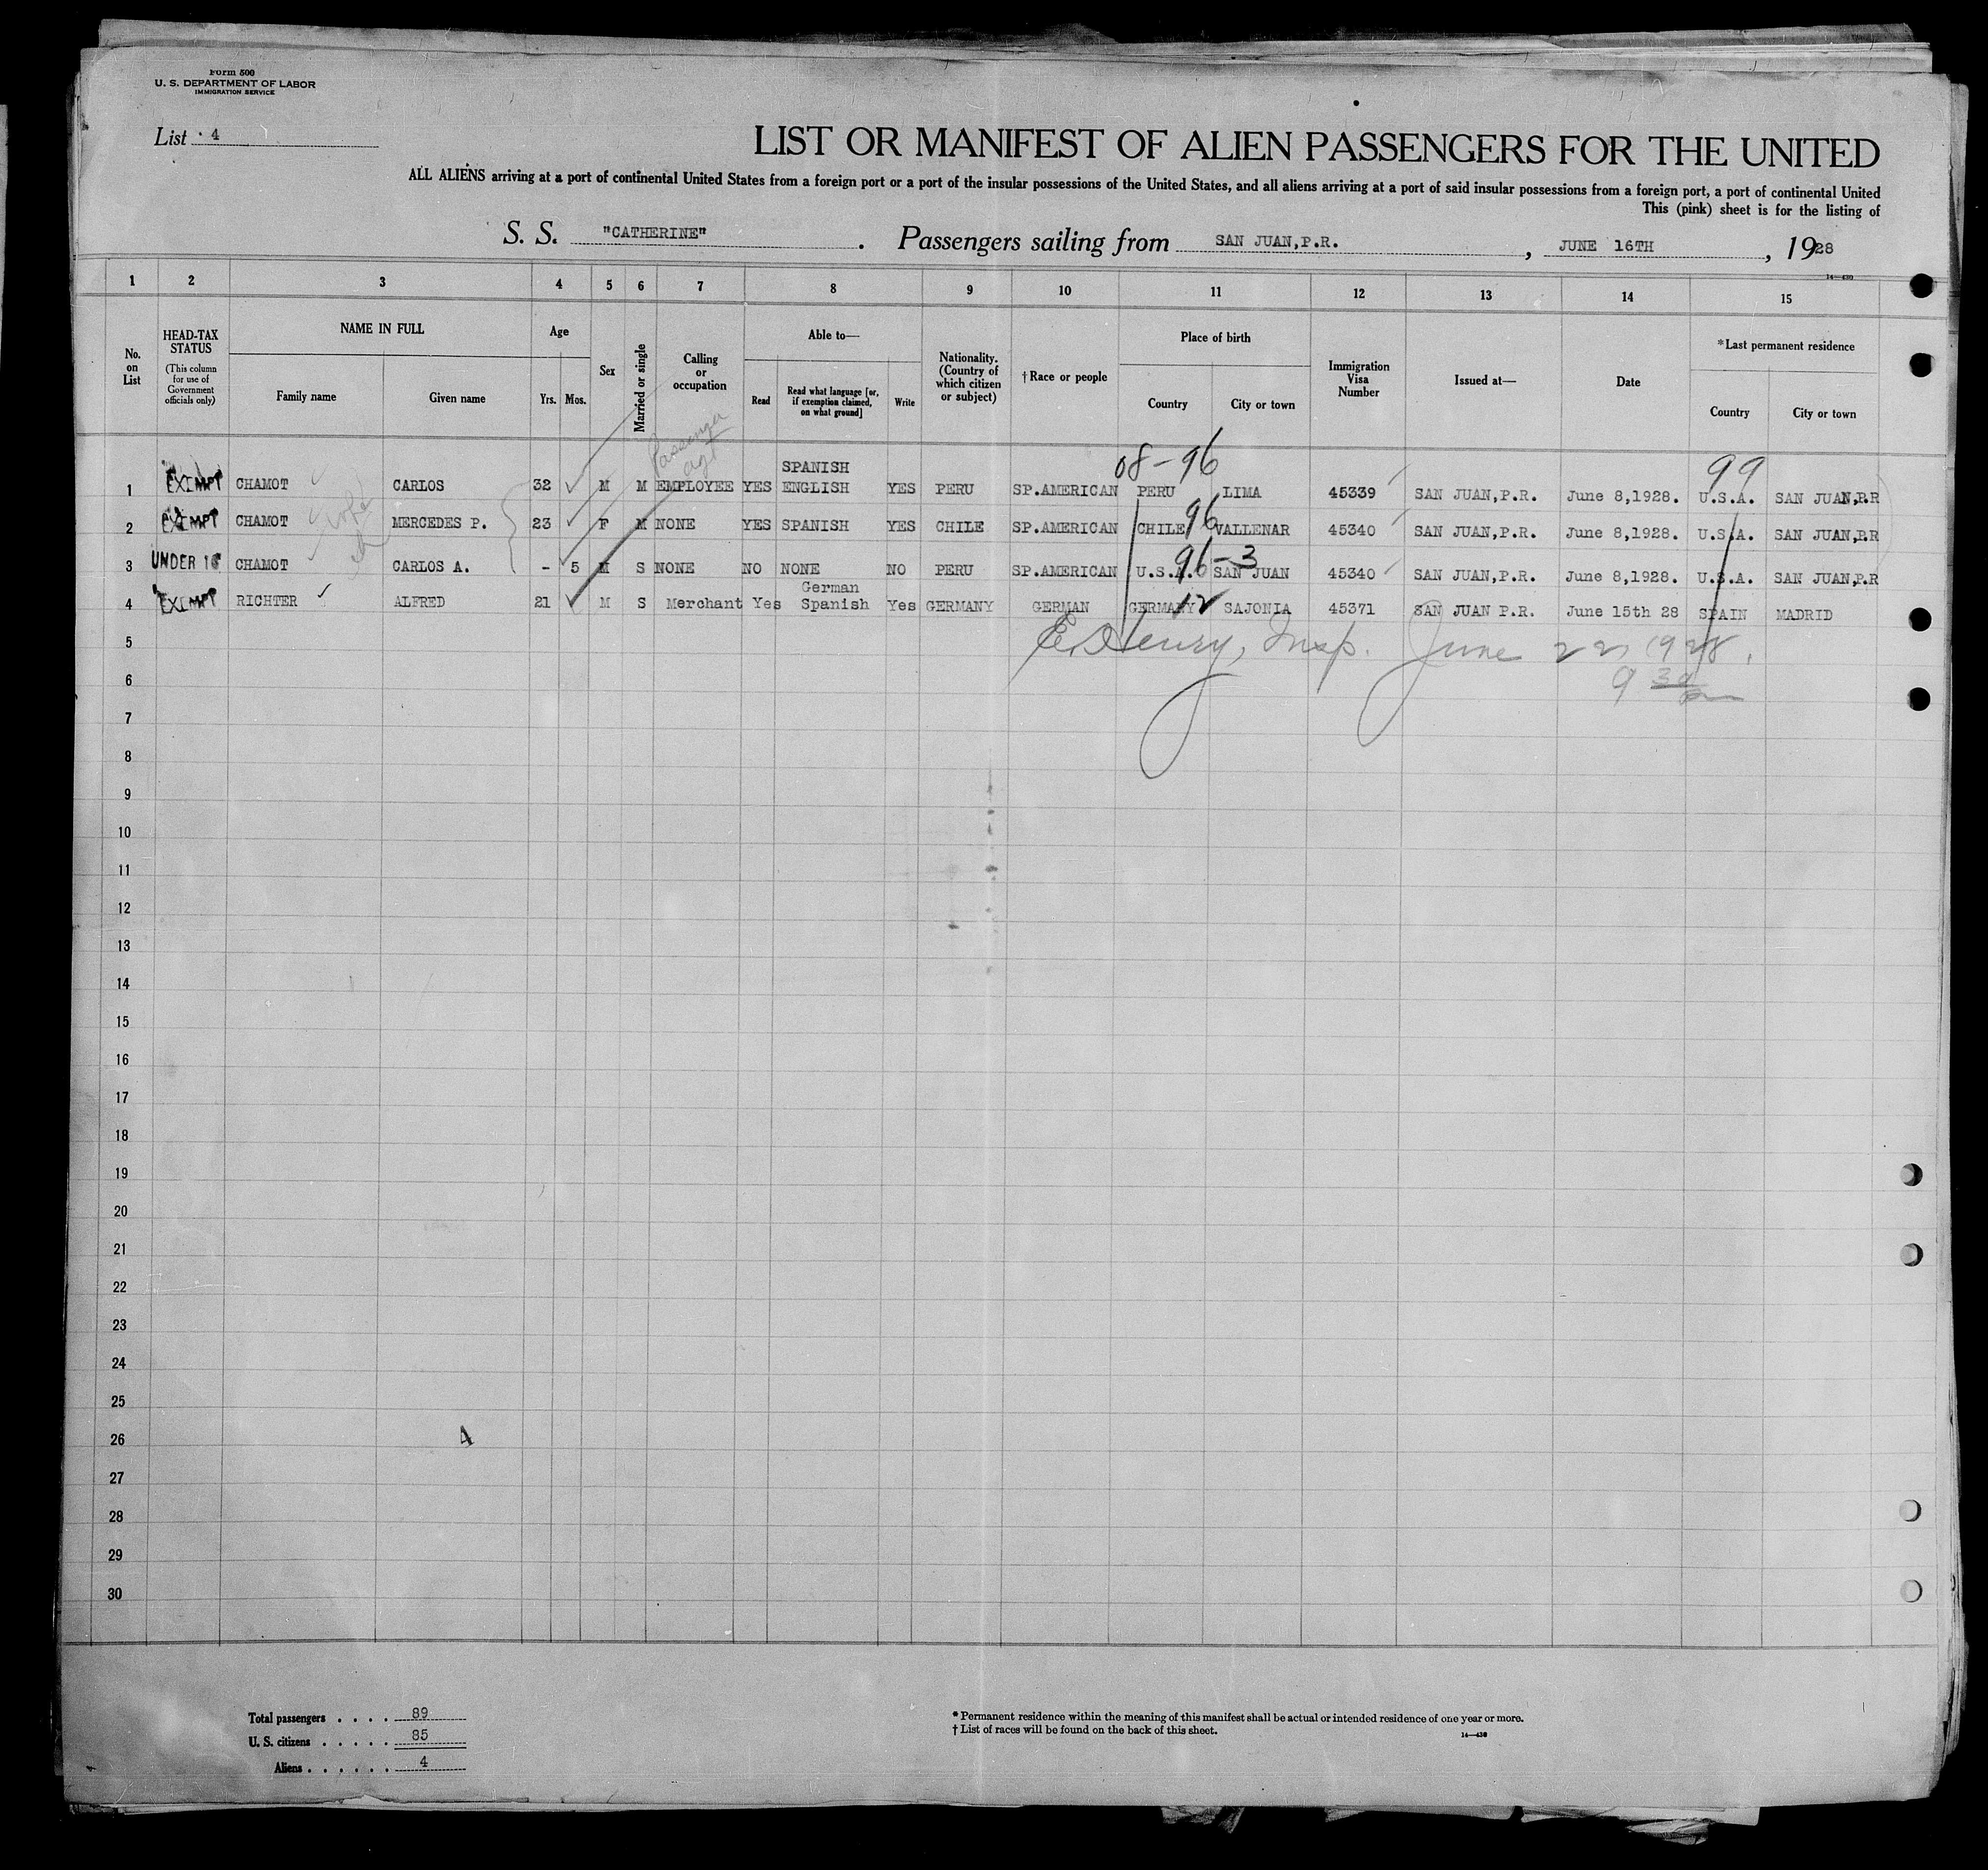 Form 500
U. S. DEPARTMENT OF LABOR
IMMIGRATION SERVICE
List 4
LIST OR MANIFEST OF ALIEN PASSENGERS FOR THE UNITED
ALL ALIENS arriving at a port of continental United States from a foreign port or a port of the insular possessions of the United States, and all aliens arriving at a port of said insular possessions from a foreign port, a port of continental United
This (pink) sheet is for the listing of
S. S. "CATHERINE" . Passengers sailing from SAN JUAN,P.R. , JUNE 16TH , 1928
14—430
1 2 3 4 5 6 7 8 9 10 11 12 13 14 15
No. on List
HEAD-TAX STATUS (This column for use of Government officials only)
NAME IN FULL
Family name Given name
Age
Yrs. Mos.
Sex
Married or single
Calling or occupation
Able to—
Read Read what language [or, if exemption claimed, on what ground] Write
Nationality. (Country of which citizen or subject)
†Race or people
Place of birth
Country City or town
Immigration Visa Number
Issued at—
Date
*Last permanent residence
Country City or town
Passenger agt
08-96 99
1 EXEMPT CHAMOT CARLOS 32 M M EMPLOYEE YES SPANISH ENGLISH YES PERU SP.AMERICAN PERU LIMA 45339 SAN JUAN,P.R. June 8,1928. U.S.A. SAN JUAN,P.R
96
2 EXEMPT CHAMOT MERCEDES P. 23 F M NONE YES SPANISH YES CHILE SP.AMERICAN CHILE VALLENAR 45340 SAN JUAN,P.R. June 8,1928. U.S.A. SAN JUAN,P.R
96-3
3 UNDER 16 CHAMOT CARLOS A. - 5 M S NONE NO NONE NO PERU SP.AMERICAN U.S.A. SAN JUAN 45340 SAN JUAN,P.R. June 8,1928. U.S.A. SAN JUAN,P.R
12
4 EXEMPT RICHTER ALFRED 21 M S Merchant Yes German Spanish Yes GERMANY GERMAN GERMANY SAJONIA 45371 SAN JUAN P.R. June 15th 28 SPAIN MADRID
5 Henry, Insp. June 22, 1928.
6 9 30
7
8
9
10
11
12
13
14
15
16
17
18
19
20
21
22
23
24
25
26 4
27
28
29
30
Total passengers . . . . 89
U. S. citizens . . . . . 85
Aliens . . . . . . 4
* Permanent residence within the meaning of this manifest shall be actual or intended residence of one year or more.
† List of races will be found on the back of this sheet.
14—430